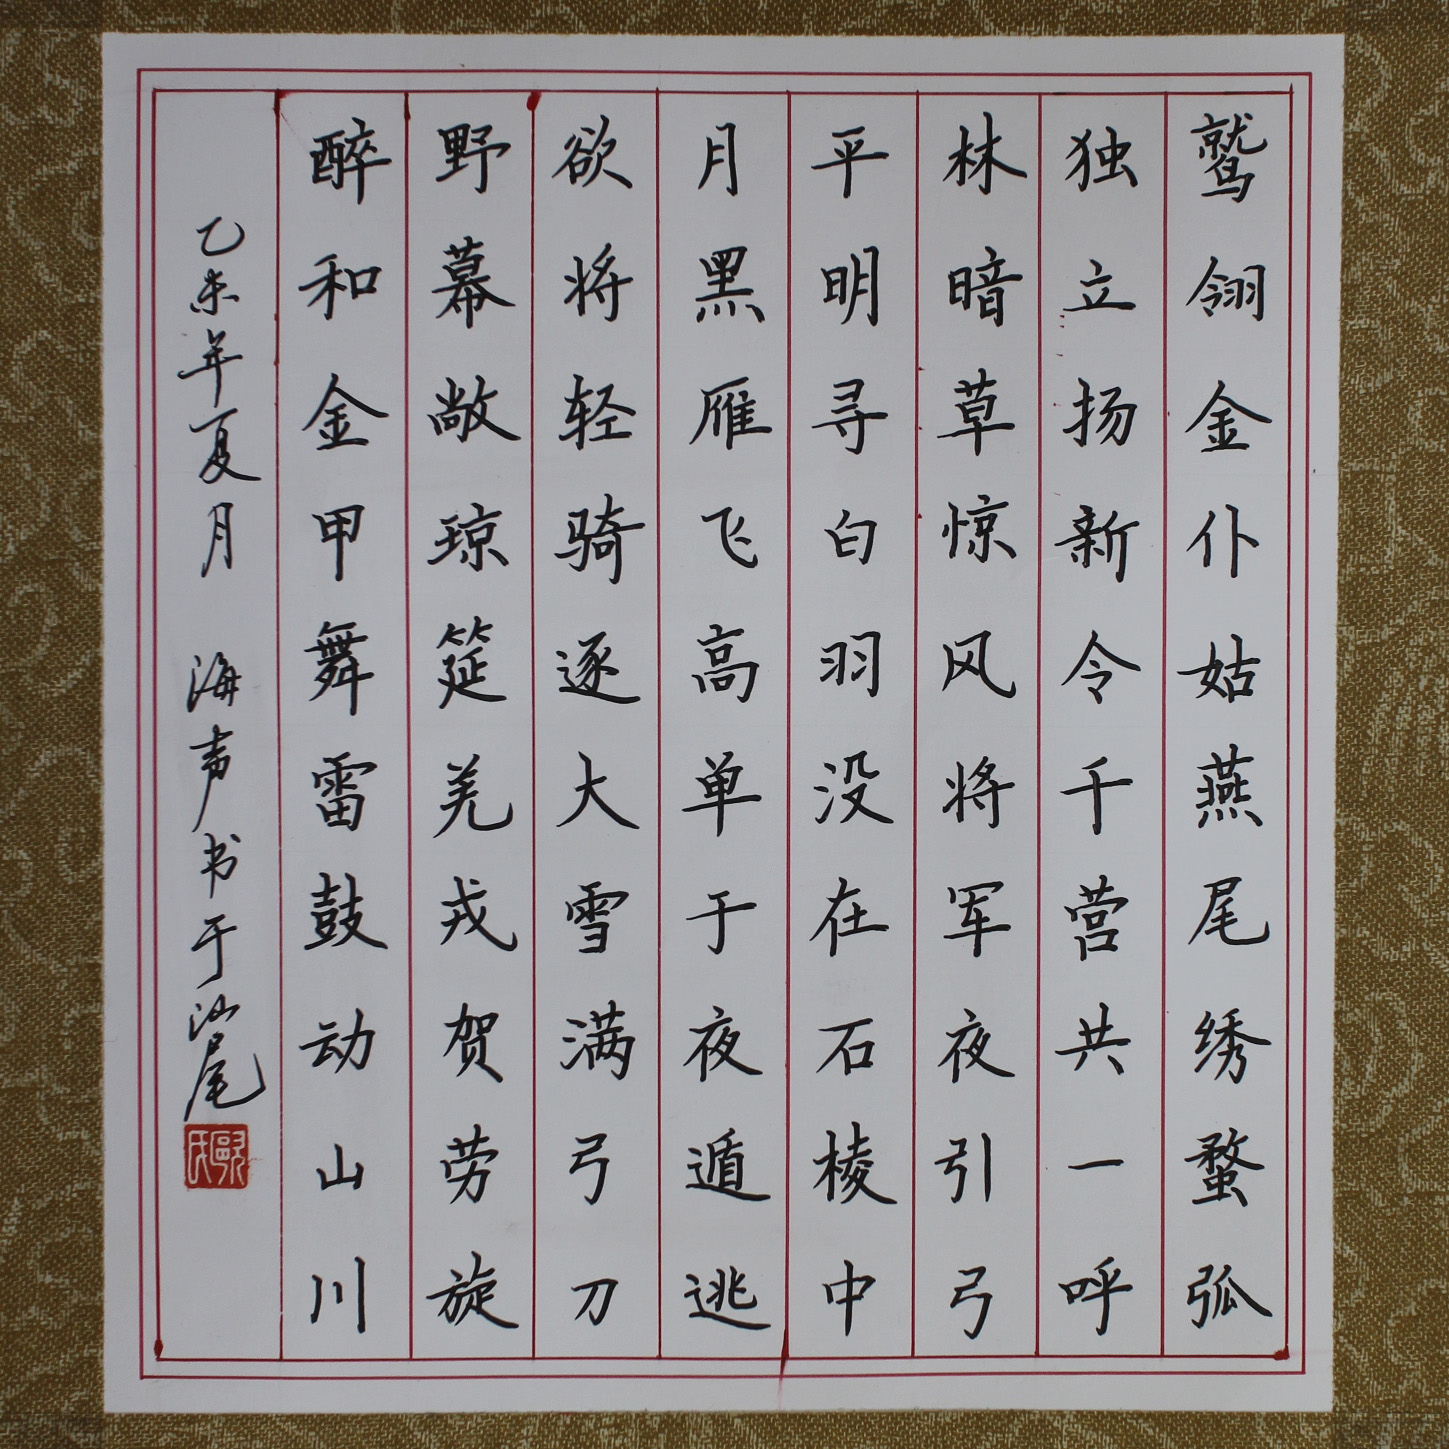 鹫翎金仆姑燕尾绣蝥弧
独立扬新令千营共一呼
林暗草惊风将军夜引弓
平明寻白羽没在石棱中
月黑雁飞高单于夜遁逃
欲将轻骑逐大雪满弓刀
野幕敞琼筵羌戎贺劳旋
醉和金甲舞雷鼓动山川
乙未年夏月 海声书于汕尾